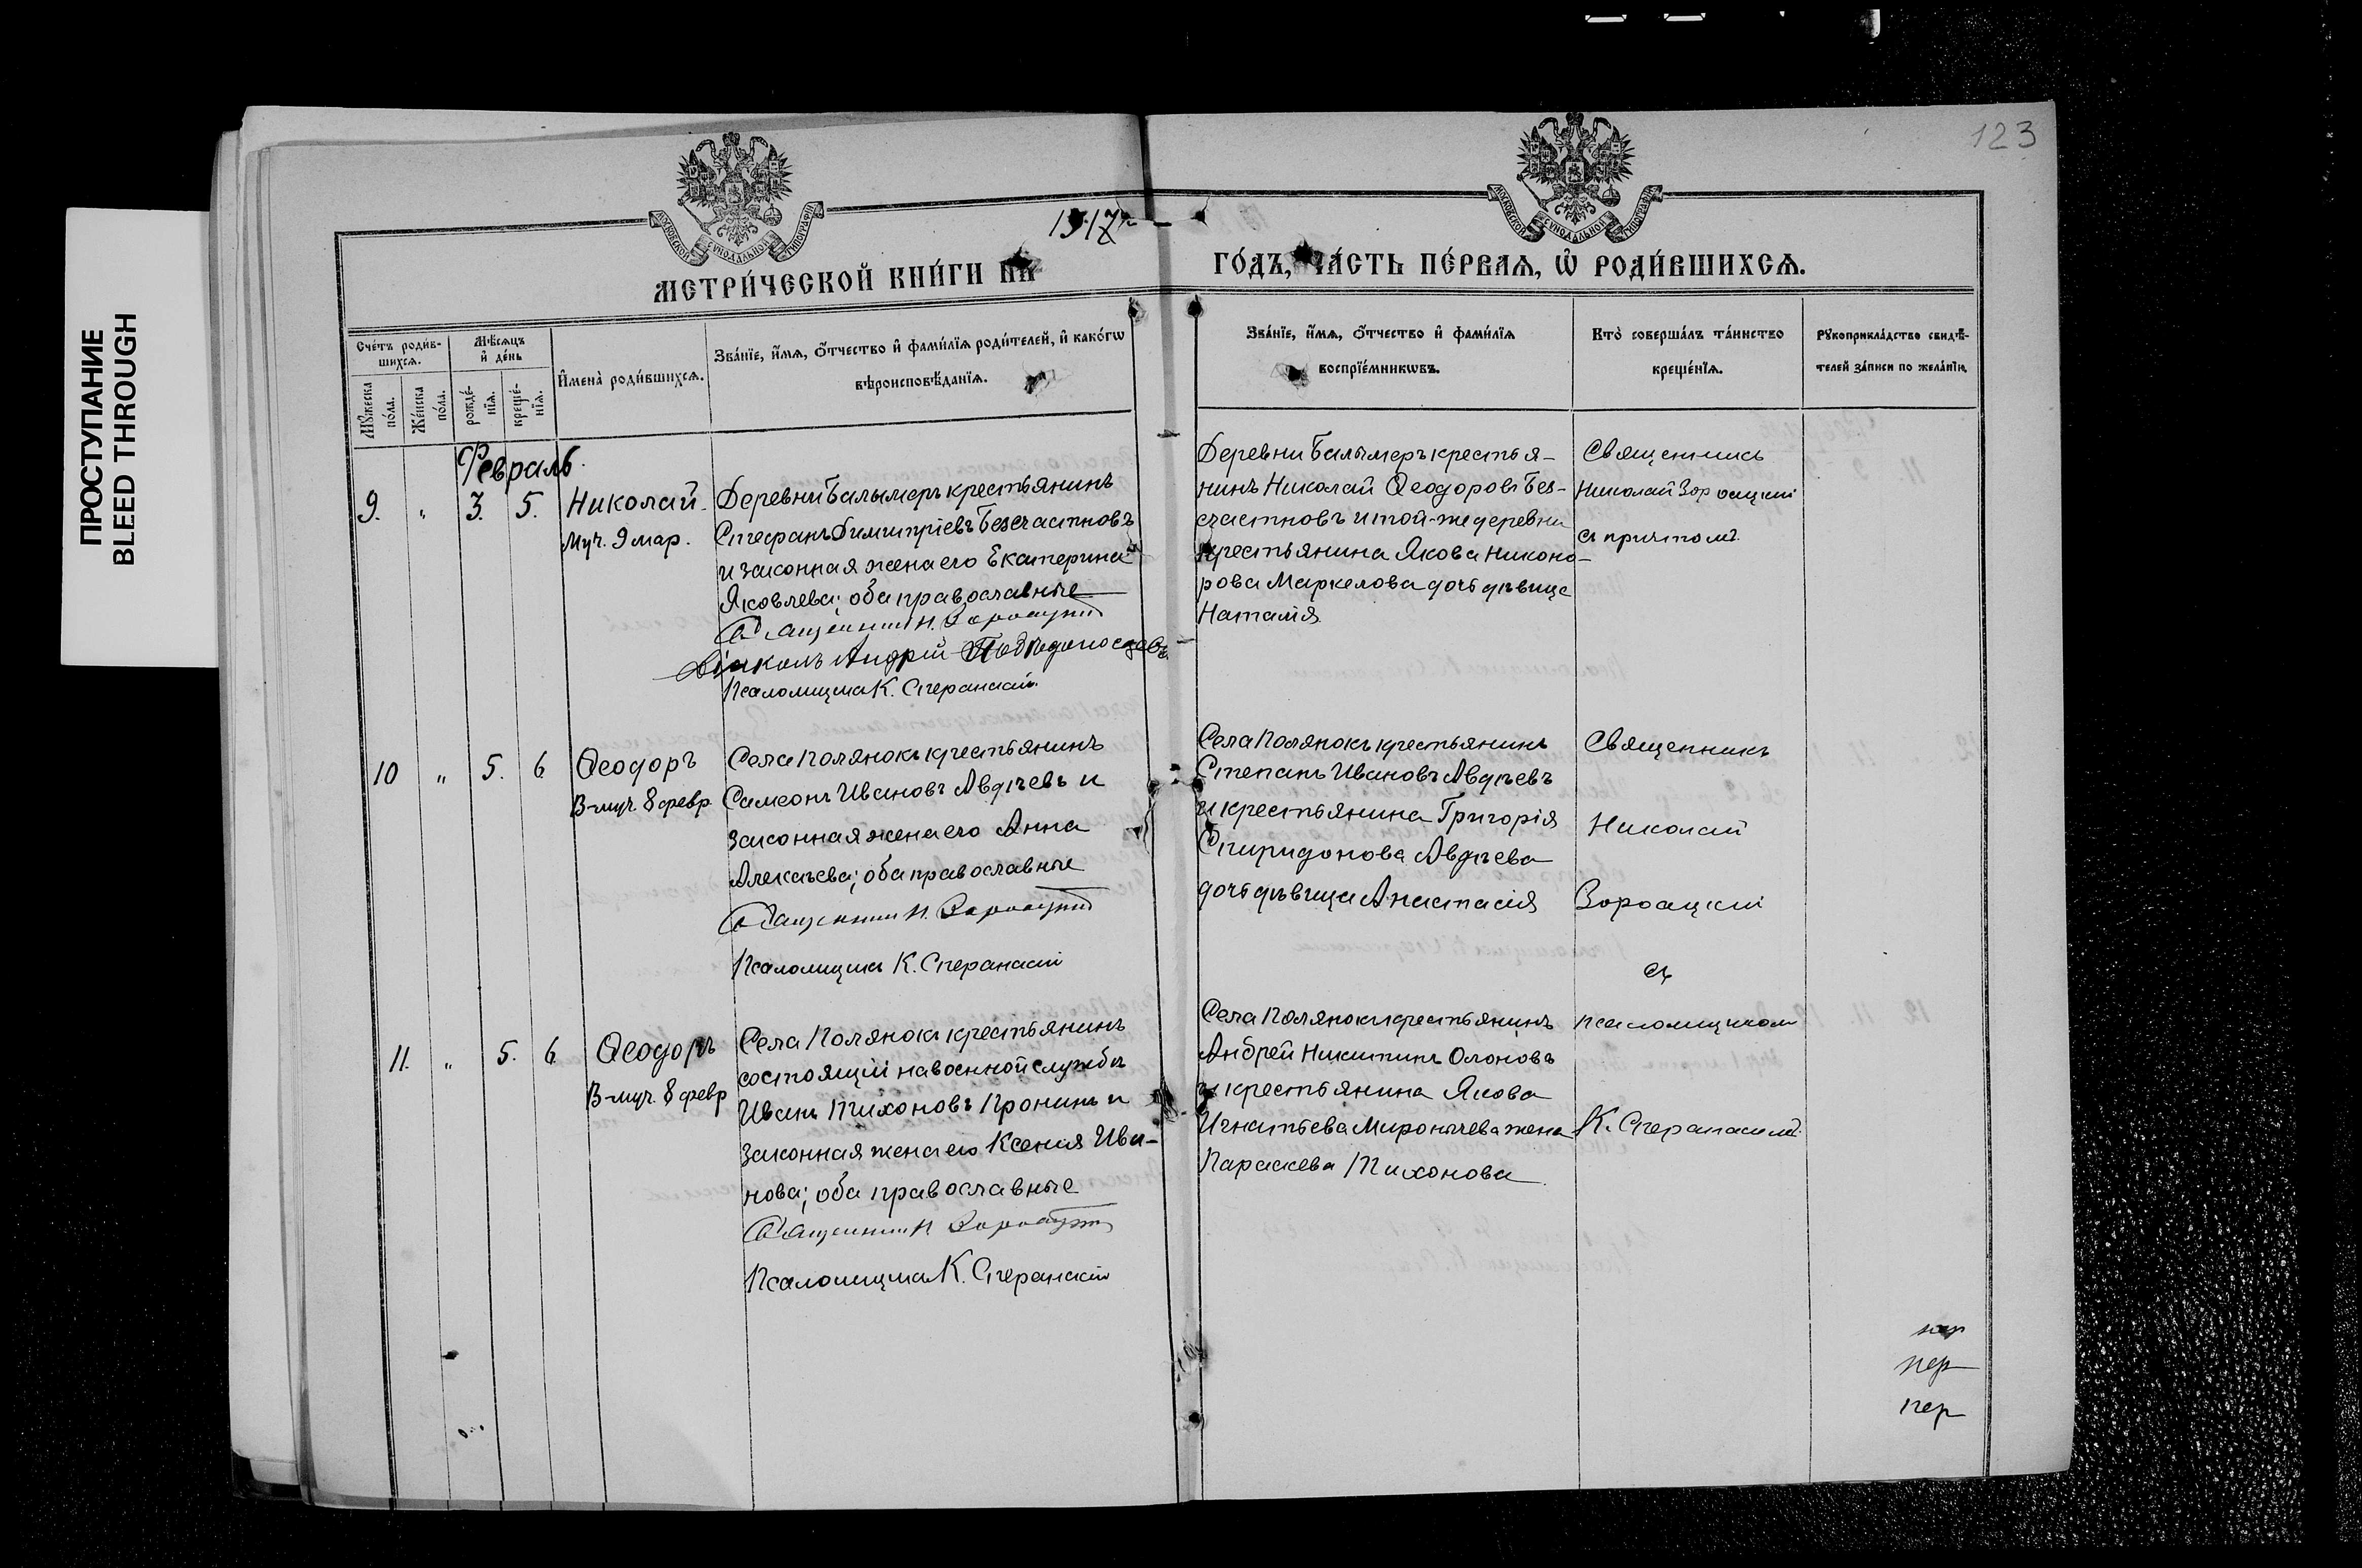 ПРОСТУПАНИЕ
BLEED THROUGH
123
МОСКОВСКОЙ СѴНОДАЛЬНОЙ ТИПОГРАФІИ
МОСКОВСКОЙ СѴНОДАЛЬНОЙ ТИПОГРАФІИ
1917 г.
МЕТРИ́ЧЕСКОЙ КНИ́ГИ НА
ГО́ДЪ, ЧА́СТЬ ПЕ́РВАѦ, Ѽ РОДИ́ВШИХСѦ.
Сче́тъ роди́в-
шихсѧ.
Мꙋ́жеска по́ла.
Же́нска по́ла.
Мѣ́сѧцъ
и҆ де́нь
рожде́-
нїѧ.
креще́-
нїѧ.
И҆мена̀ роди́вшихсѧ.
Зва́нїе, и҆́мѧ, ѻ҆́тчество и҆ фами́лїѧ роди́телей, и҆ како́гѡ
вѣроисповѣ́данїѧ.
Зва́нїе, и҆́мѧ, ѻ҆́тчество и҆ фами́лїѧ
воспрїе́мникѡвъ.
Кто̀ соверша́лъ та́инство
креще́нїѧ.
Рꙋкоприкла́дство свидѣ́-
телей за́писи по жела́нїю.
Февраль.
9. " 3. 5.
Николай
Муч. 9 мар.
Деревни Балымеръ крестьянинъ
Стефанъ Димитріевъ Безсчастновъ
и законная жена его Екатерина
Яковлева; оба православные
Священникъ Н. Зороацкій
Діаконъ Андрей Побѣдоносцевъ
Псаломщикъ К. Сперанскій
Деревни Балымеръ крестья-
нинъ Николай Ѳеодоровъ Без-
счастновъ и той-же деревни
крестьянина Якова Никоно-
рова Маркелова дочь дѣвица
Наталія
Священникъ
Николай Зороацкій
съ причтомъ.
10 " 5. 6
Ѳеодоръ
В-муч. 8 февр.
Села Полянокъ крестьянинъ
Самсонъ Ивановъ Авдѣевъ и
законная жена его Анна
Алексѣева; оба православные
Священникъ Н. Зороацкій
Псаломщикъ К. Сперанскій
Села Полянокъ крестьянинъ
Степанъ Ивановъ Авдѣевъ
и крестьянина Григорія
Спиридонова Авдѣева
дочь дѣвица Анастасія
Священникъ
Николай
Зороацкій
съ
псаломщикомъ
К. Сперанскимъ.
11. " 5. 6
Ѳеодоръ
В-муч. 8 февр
Села Полянокъ крестьянинъ
состоящій на военной службѣ
Иванъ Тихоновъ Пронинъ и
законная жена его Ксенія Ива-
нова; оба православные
Священникъ Н Зороацкій
Псаломщикъ К. Сперанскій
Села Полянокъ крестьянинъ
Андрей Никитинъ Олоновъ
и крестьянина Якова
Игнатьева Миронычева жена
Параскева Тихонова
пер
пер
пер